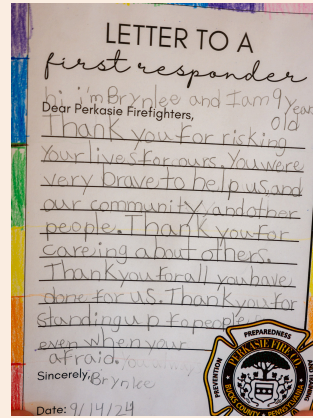 LETTER TO A
first responder
hi i'm Brynlee and I am 9 years
old
Dear Perkasie Firefighters,
Thank you for risking
Your lives for ours. You were
very brave to help us and
our community, and other
people. Thank you for
careing about others.
Thank you for all you have
done for us. Thank you for
standing up to people
even when your
afraid.
Sincerely, Brynlee
Date: 9/14/24
PREPAREDNESS
PREVENTION
PERKASIE FIRE CO.
BUCKS COUNTY PENNSYLVANIA